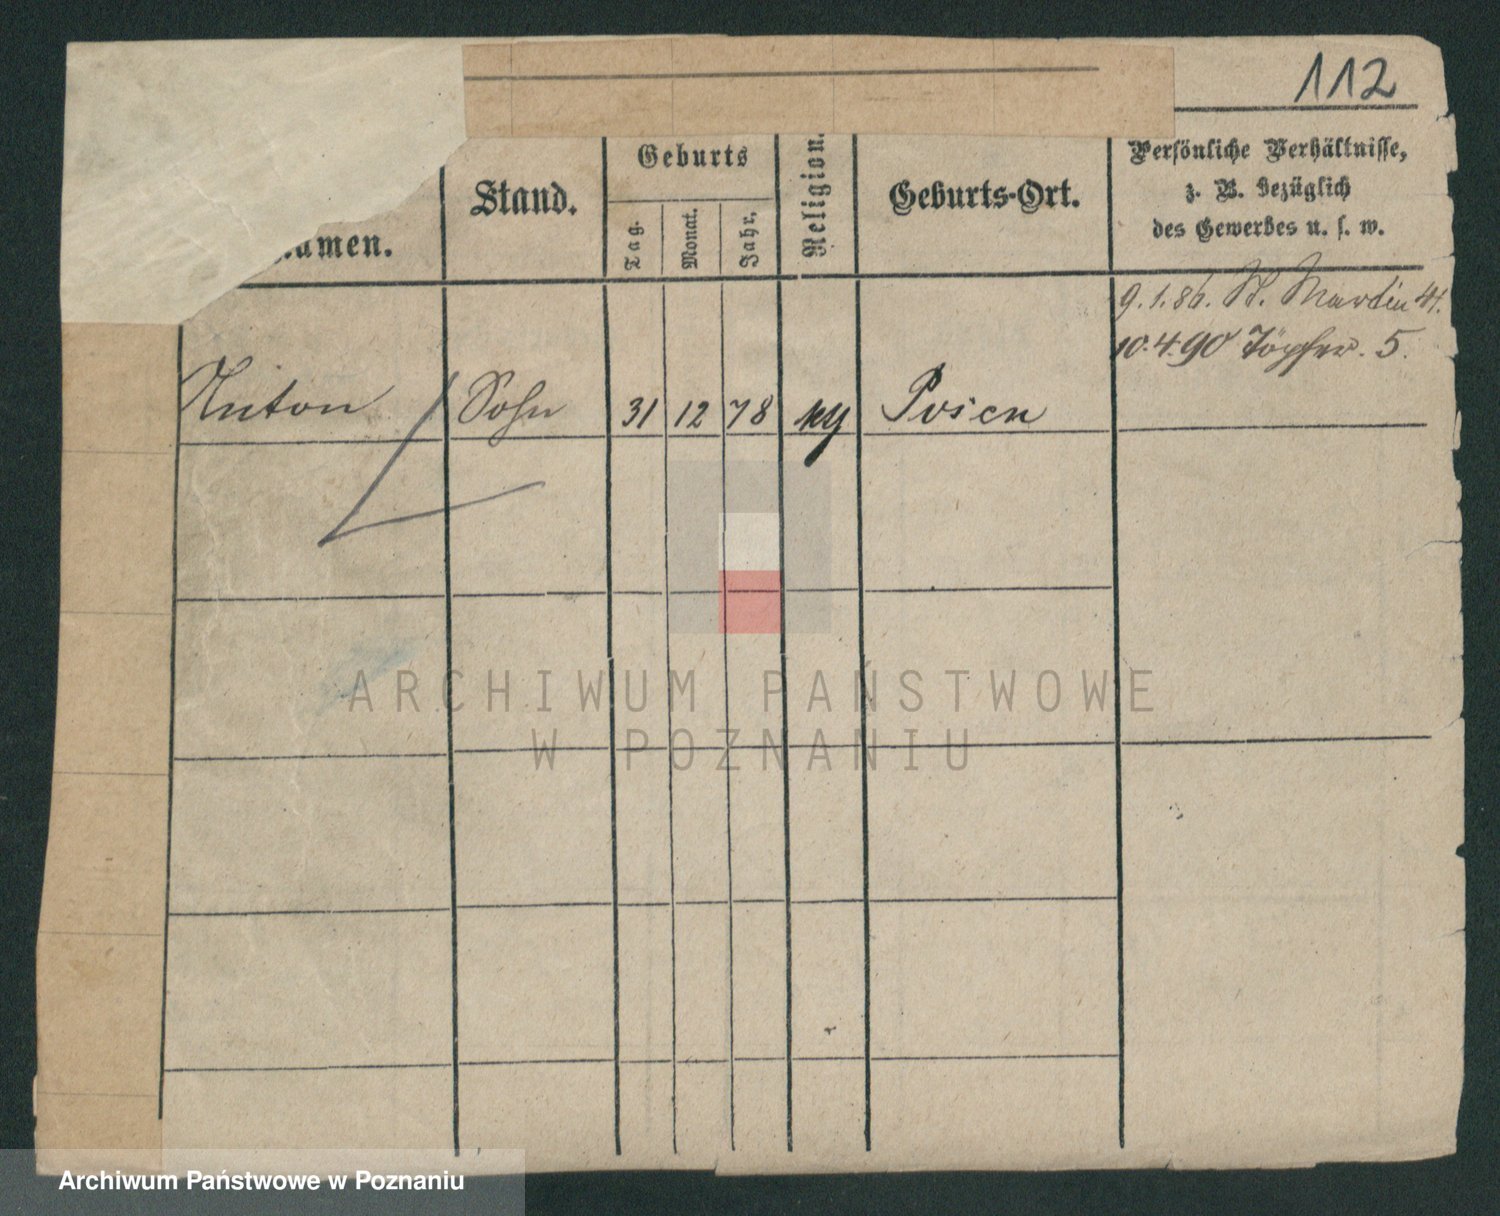 112
Geburts
Religion.
Persönliche Verhältnisse,
z. B. bezüglich
des Gewerbes u. s. w.
Stand.
Geburts-Ort.
Tag.
Monat.
Jahr.
amen.
9.1.86. St. Martin 41.
10.4.90 Töpfer. 5.
Anton Sohn 31 12 78 Posen
ARCHIWUM PAŃSTWOWE
W POZNANIU
Archiwum Państwowe w Poznaniu